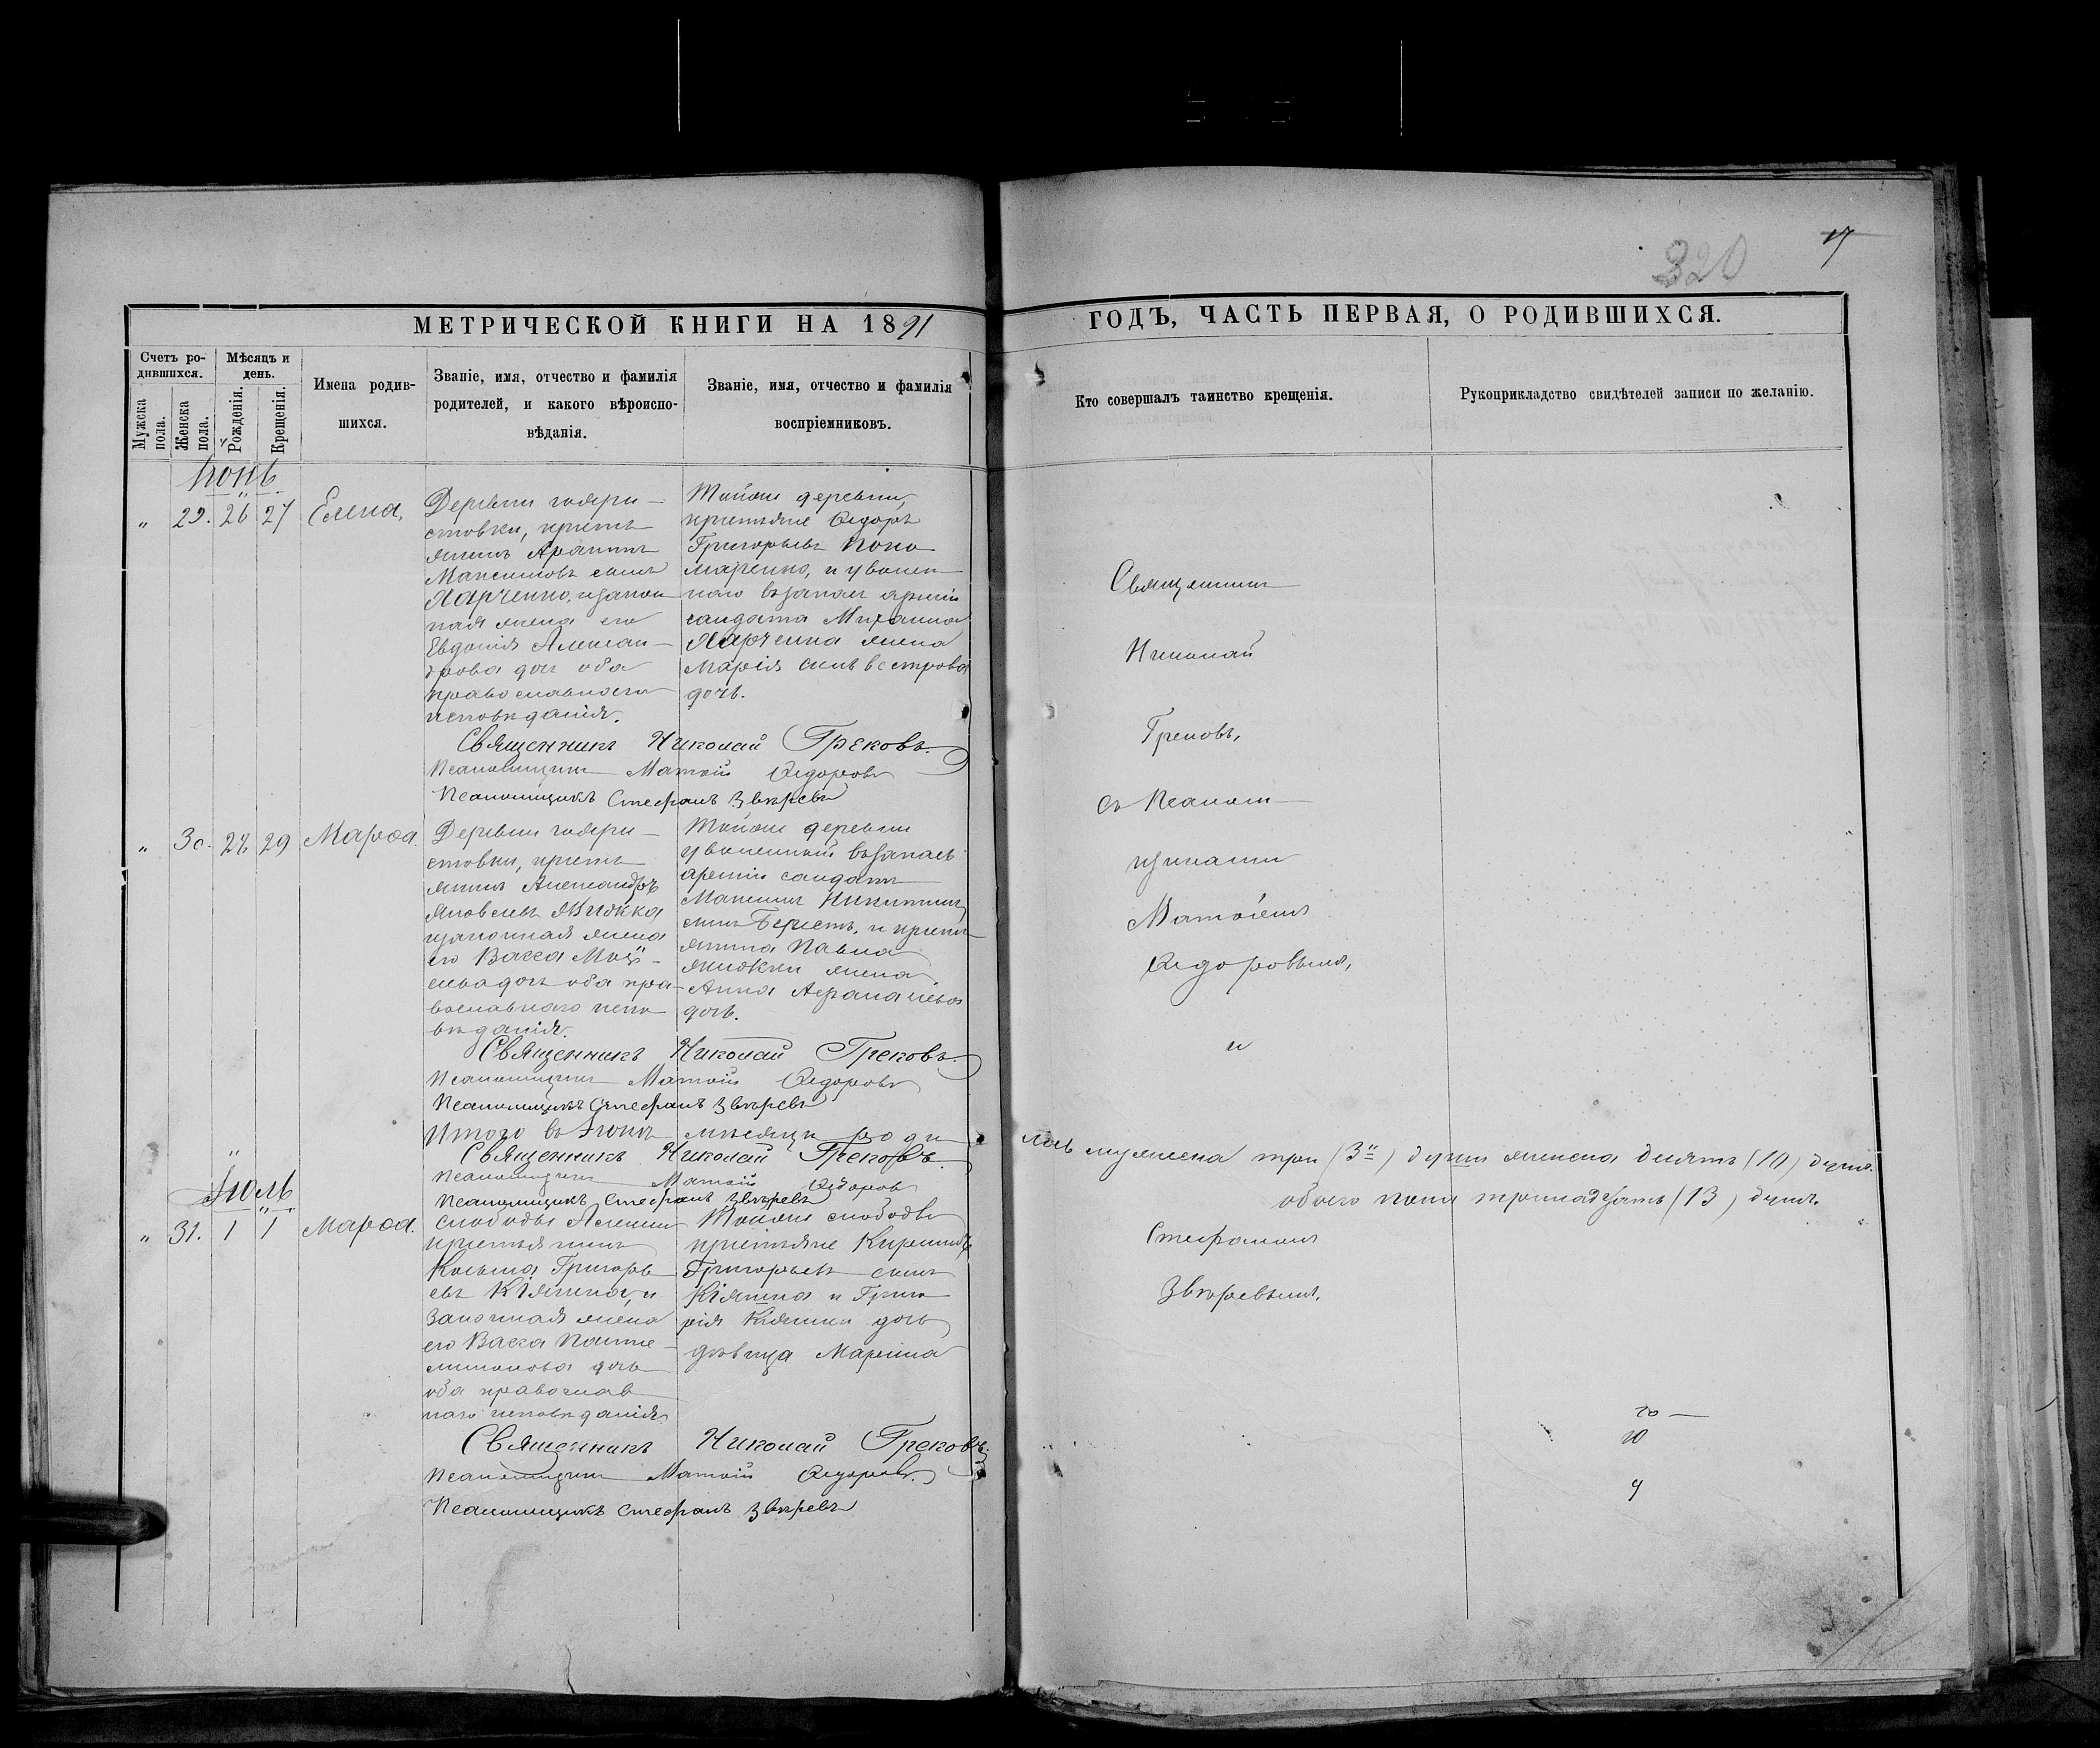 320
17
МЕТРИЧЕСКОЙ КНИГИ НА 1891
ГОДЪ, ЧАСТЬ ПЕРВАЯ, О РОДИВШИХСЯ.
Счетъ родившихся.
Мужска пола.
Женска пола.
Мѣсяцъ и день.
Рожденія.
Крещенія.
Имена родив-
шихся.
Званіе, имя, отчество и фамилія
родителей, и какого вѣроиспо-
вѣданія.
Званіе, имя, отчество и фамилія
воспріемниковъ.
Кто совершалъ таинство крещенія.
Рукоприкладство свидѣтелей записи по желанію.
Іюнь
" 29. 26 27 Елена,
Деревни
стовки, кресть
янинъ
Максимовъ сынъ
Харченко, и закон
ная жена его
Евдокія Алексан-
дрова дочь оба
православнаго
исповѣданія.
Тойже деревни,
крестьяне Ѳедоръ
Григорьевъ Поно
маренко, и уволен
наго въ запасъ арміи
солдата Михаила
Харченка жена
Марія
дочь.
Священникъ Николай Грековъ.
Псаломщикъ Матѳій Ѳедоровъ
Псаломщикъ Стефанъ Звѣревъ
" 30. 28 29 Марѳа.
Деревни
стовки, кресть
янинъ Александръ
Яковлевъ Жидкка
и законная жена
его Васса Мойсе-
ева дочь оба пра-
вославнаго испо-
вѣданія.
Тойже деревни
уволенный въ запасъ
арміи солдатъ
Максимъ Никитинъ
сынъ Берестъ, и кресть
янина Павла
Жидкки жена
Анна Аѳанасіева
дочь.
Священникъ Николай Грековъ.
Псаломщикъ Матѳій Ѳедоровъ
Псаломщикъ Стефанъ Звѣревъ
Итого въ Іюнѣ мѣсяцѣ роди
лось мужеска три (3и) души женска десять (10) душъ.
обоего пола тринадцать (13) душъ.
Священникъ Николай Грековъ.
Псаломщикъ Матѳій Ѳедоровъ
Псаломщикъ Стефанъ Звѣревъ
Іюль
" 31. 1 1 Марѳа.
Слободы
крестьянинъ
Косьма Григорь
евъ Кіяшка, и
законная жена
его Васса Панте-
лимонова дочь
оба православ
наго исповѣданія.
Тойже слободы
крестьяне Кириллъ
Григорьевъ сынъ
Кіяшка и Григо
рія Кіяшки дочь
дѣвица Марина
Священникъ Николай Грековъ.
Псаломщикъ Матѳій Ѳедоровъ.
Псаломщикъ Стефанъ Звѣревъ
Священникъ
Николай
Грековъ,
съ Псалом-
щиками
Матѳіемъ
Ѳедоровымъ,
и
Стефаномъ
Звѣревымъ.